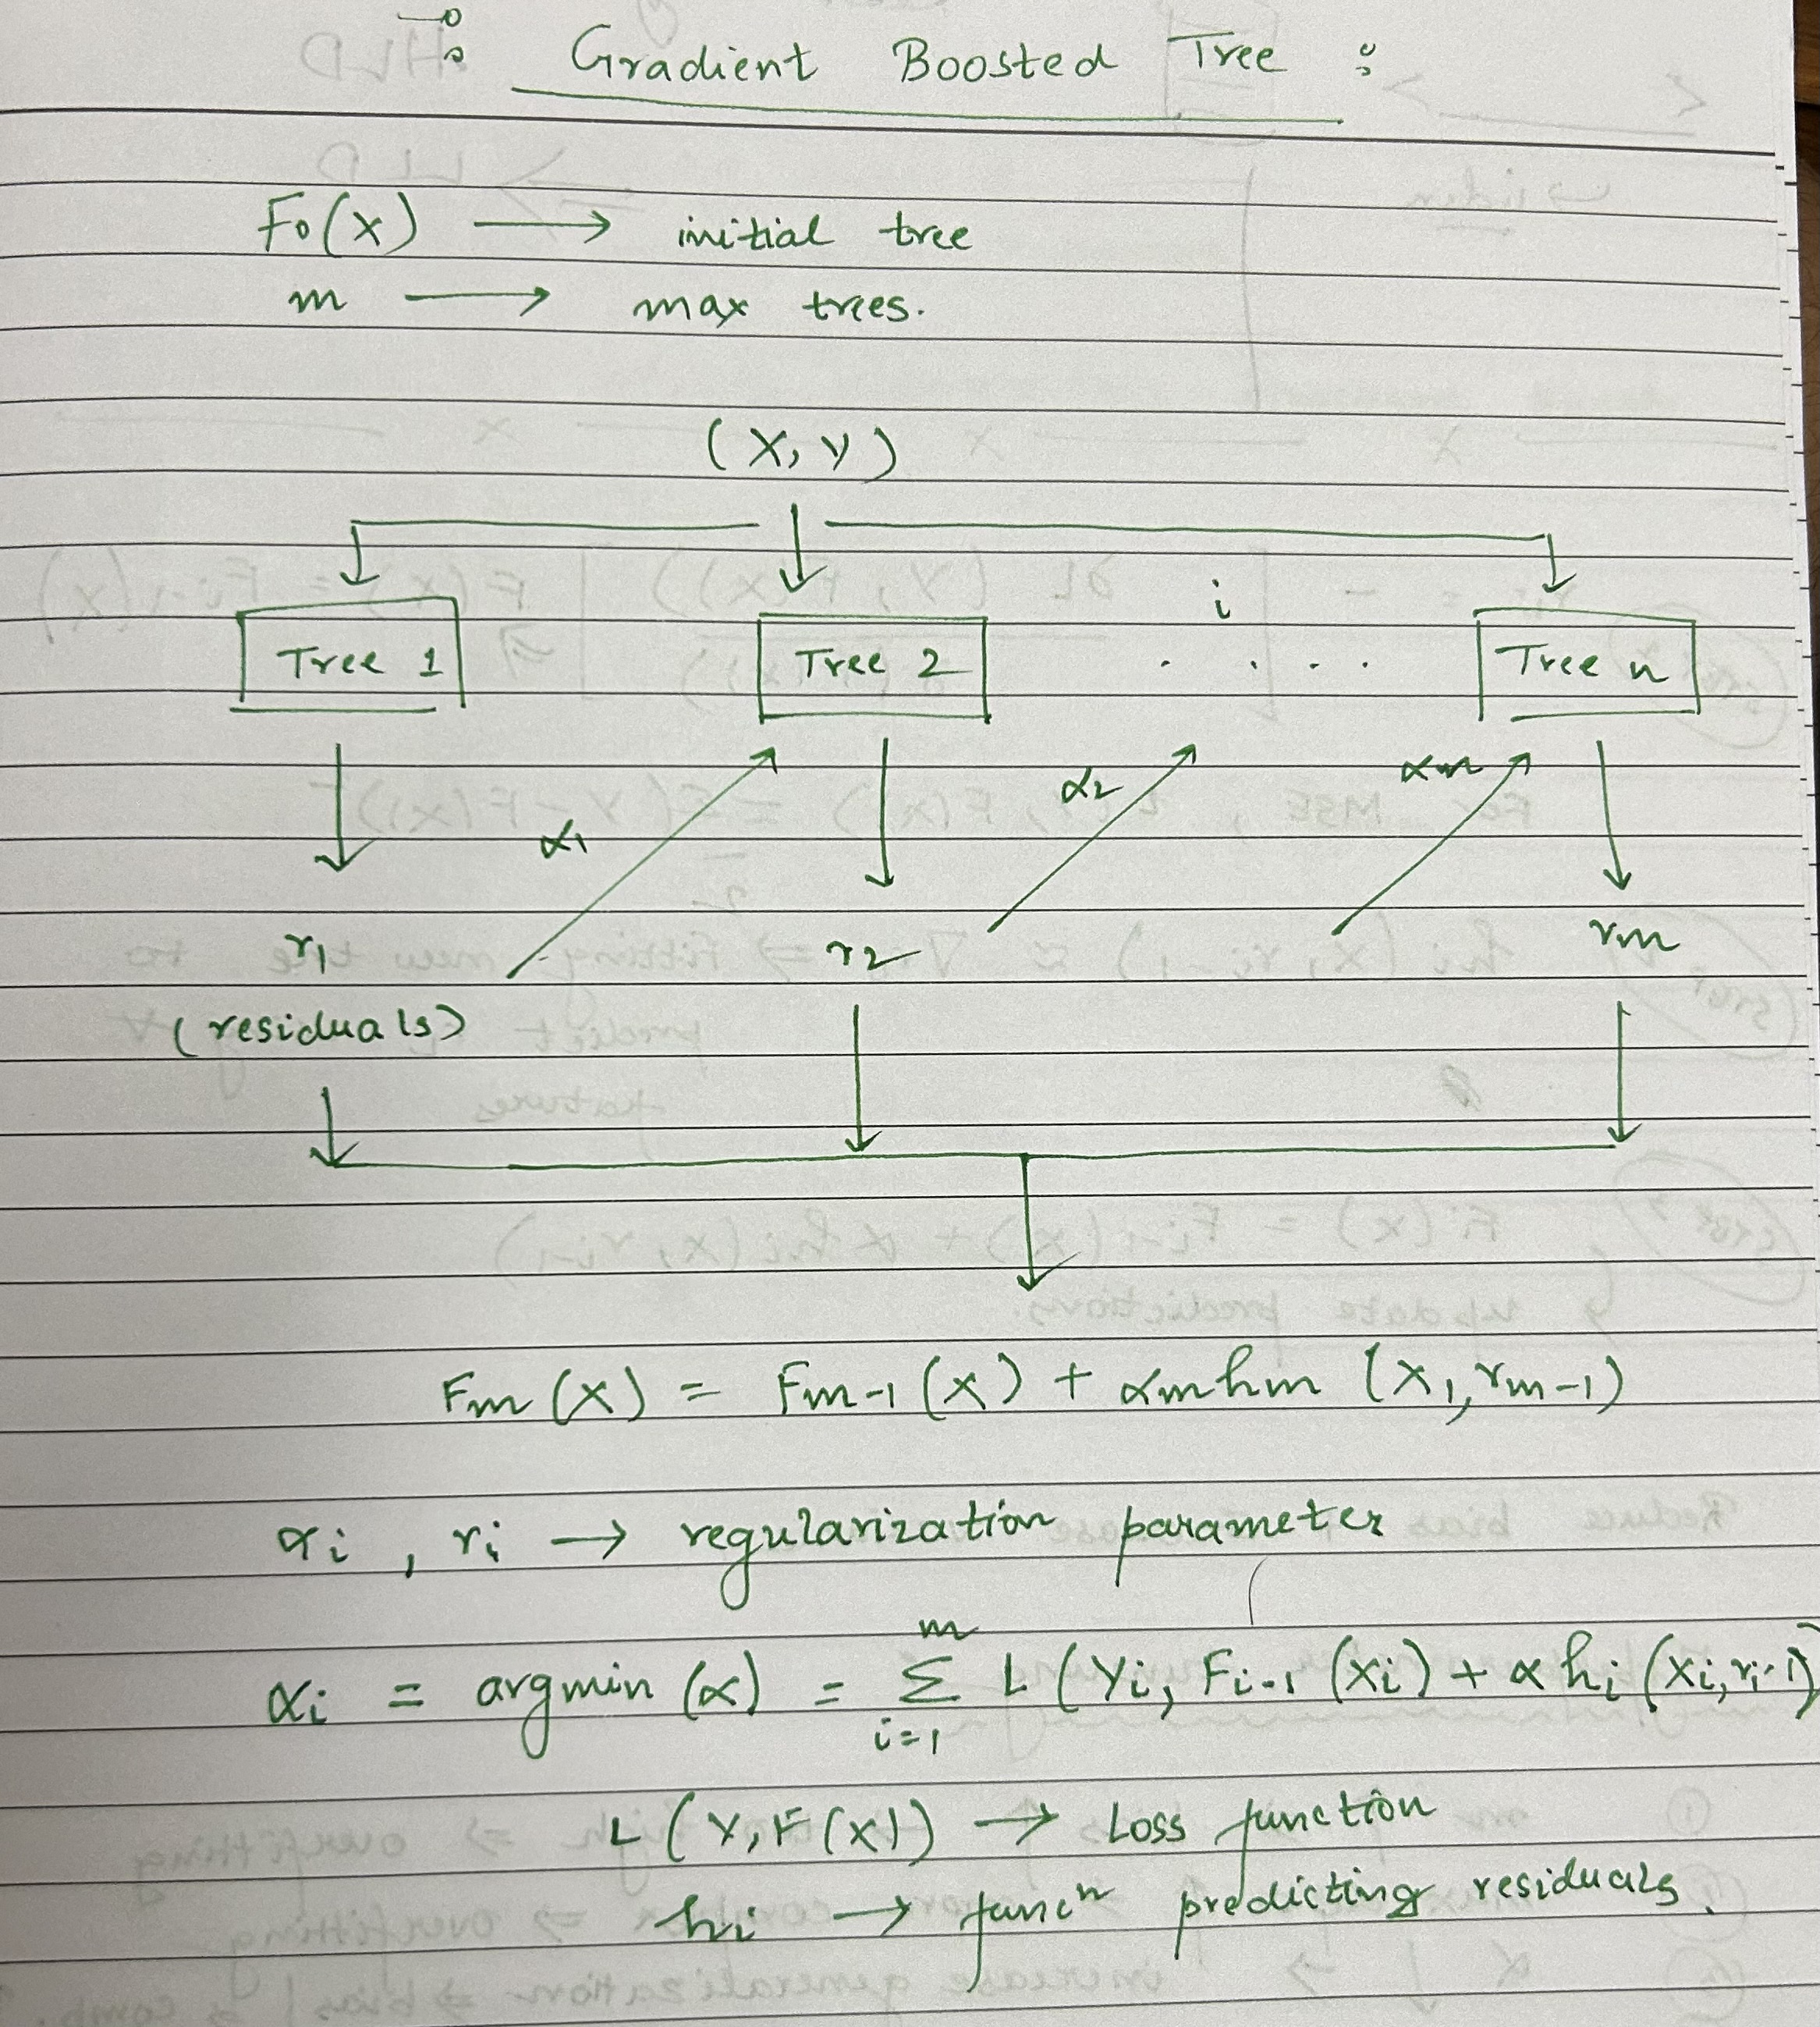 : Gradient Boosted Tree :
F0(X) → initial tree
m → max trees.
(X, Y)
i
Tree 1 Tree 2 . . . . Tree n
α1 α2 αm
r1 r2 rm
(residuals)
Fm(X) = Fm-1(X) + αm hm (X1, rm-1)
αi , ri → regularization parameter
m
αi = argmin (α) = Σ L (Yi, Fi-1 (Xi) + α hi (Xi, ri-1)
i=1
L (Y, F(X)) → Loss function
hi → funcⁿ predicting residuals.